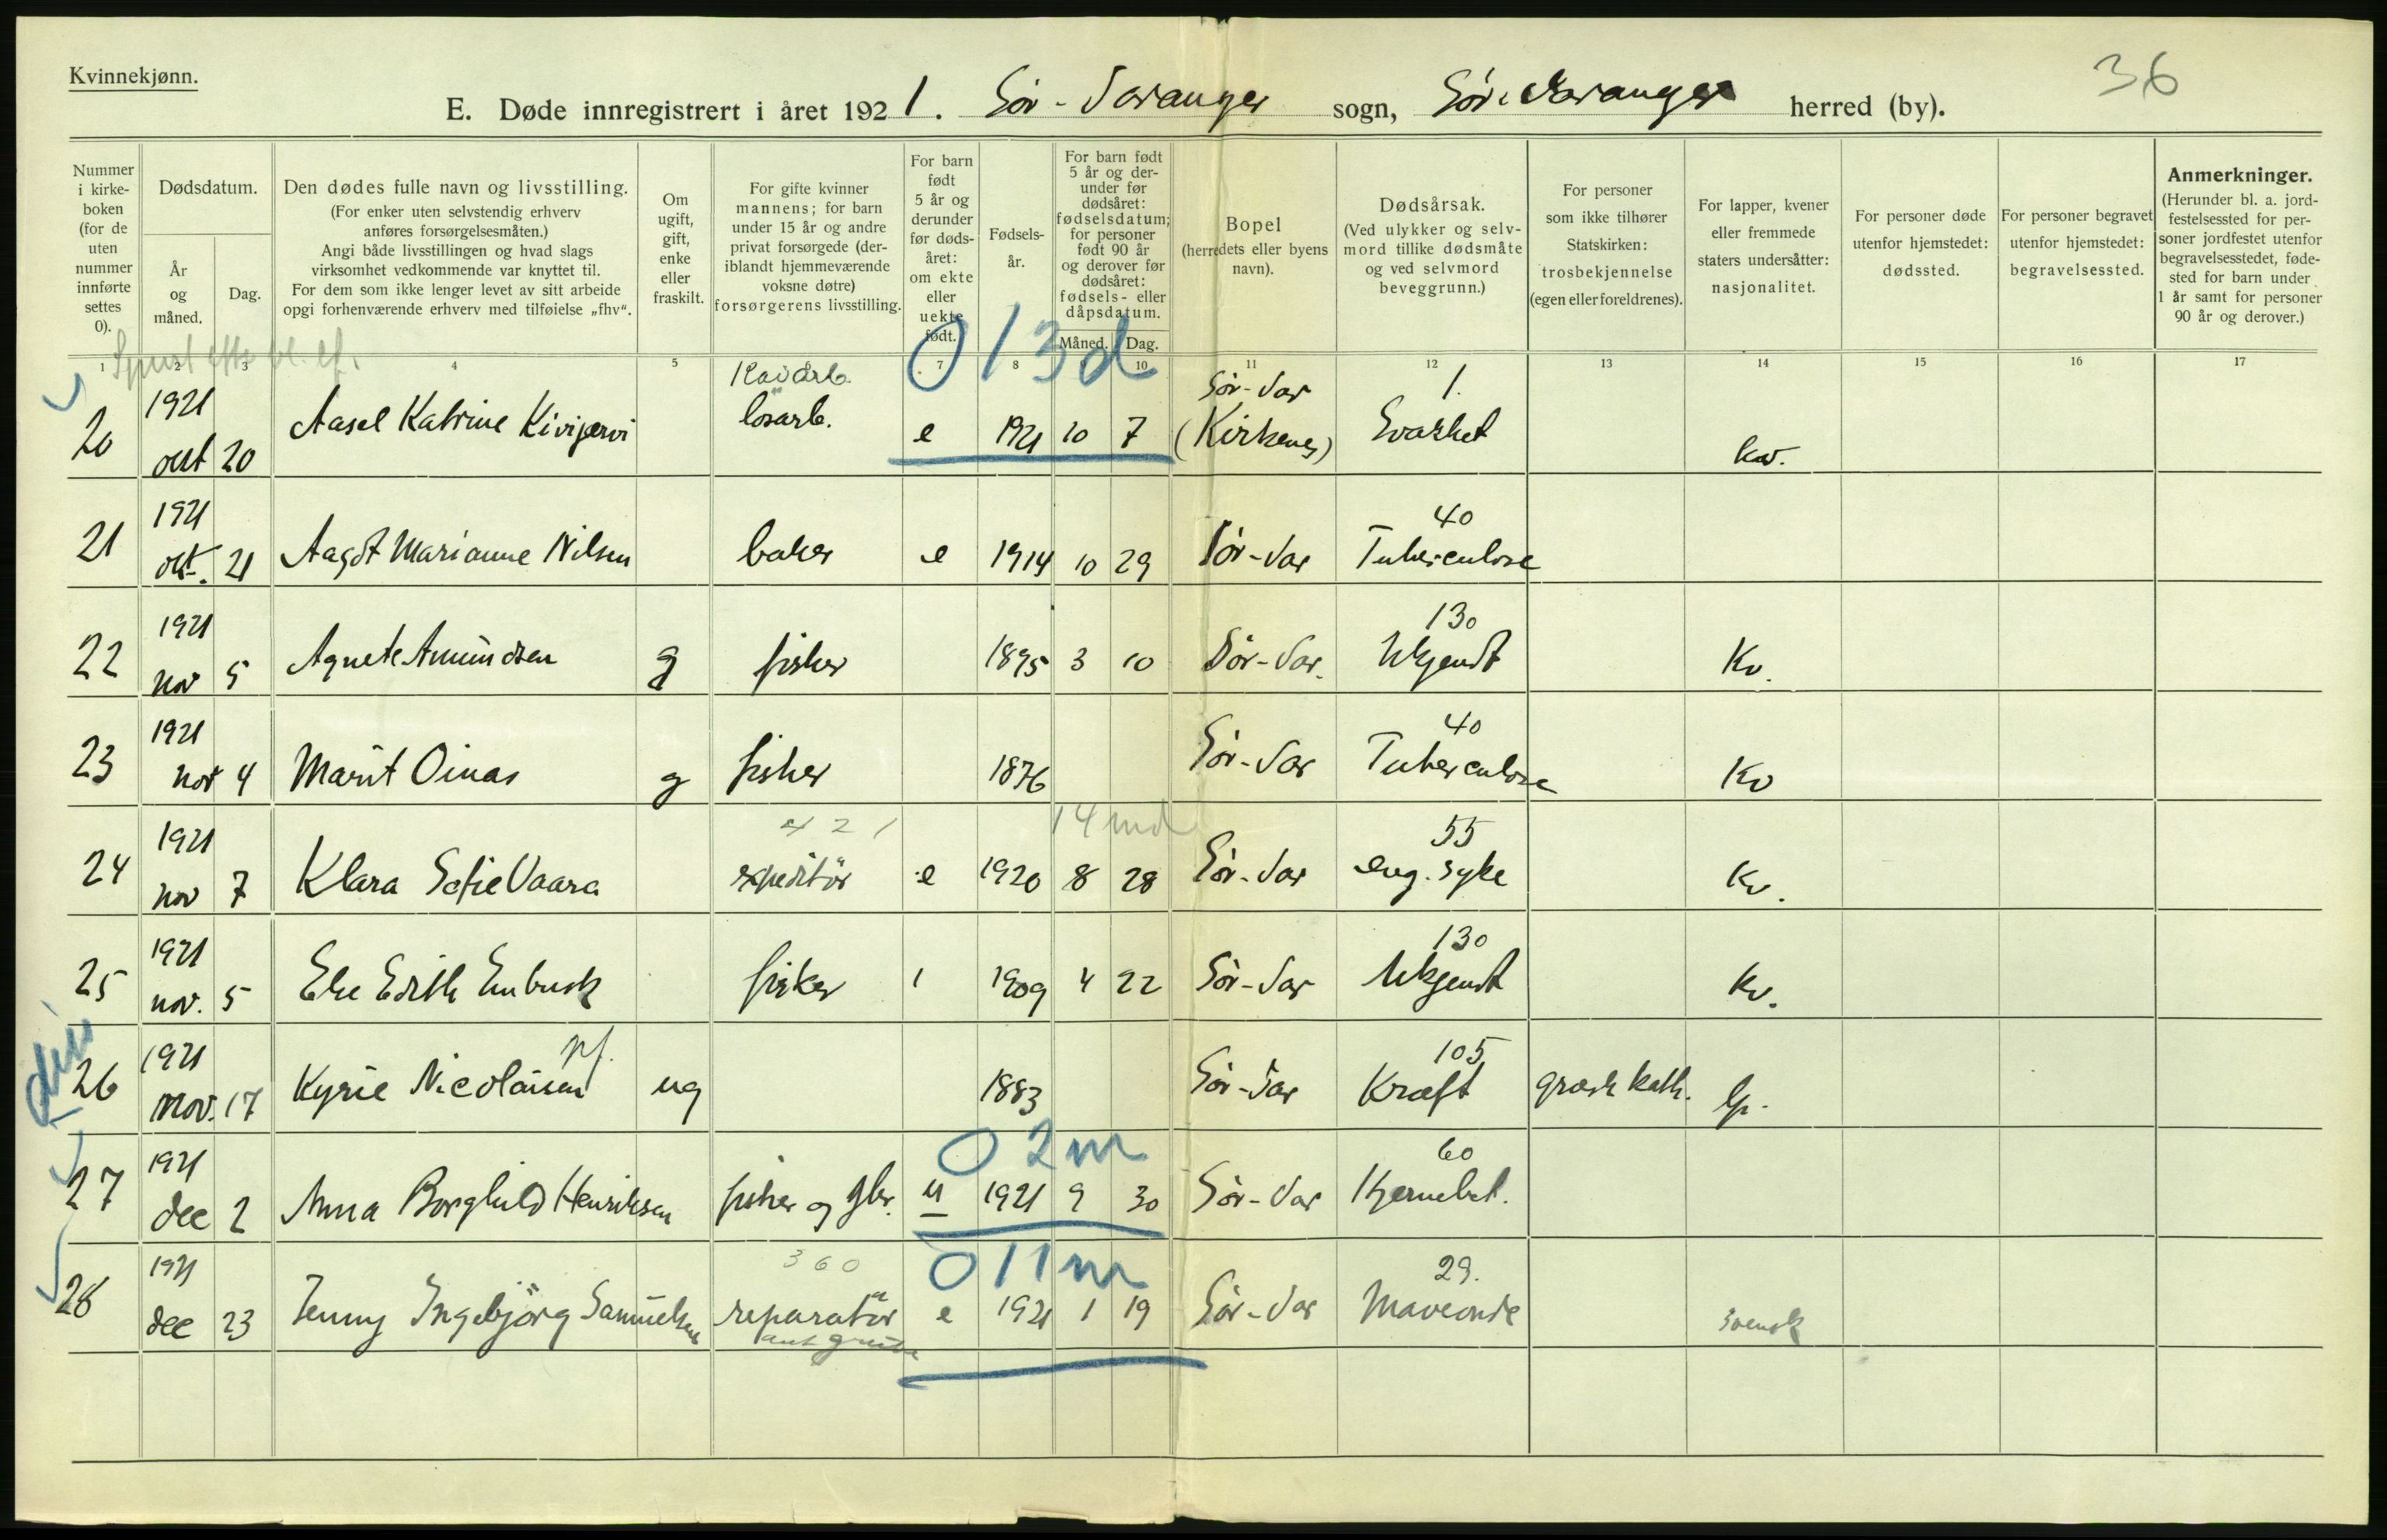 Kvinnekjønn.
36
E. Døde innregistrert i året 1921. Sör-Varanger sogn, Sör-Varanger herred (by).
Nummer i kirkeboken (for de uten nummer innførte settes 0).
Dødsdatum.
År og måned.
Dag.
Den dødes fulle navn og livsstilling.
(For enker uten selvstendig erhverv anføres forsørgelsesmåten.)
Angi både livsstillingen og hvad slags virksomhet vedkommende var knyttet til.
For dem som ikke lenger levet av sitt arbeide opgi forhenværende erhverv med tilføielse „fhv“.
Om ugift, gift, enke eller fraskilt.
For gifte kvinner mannens; for barn under 15 år og andre privat forsørgede (deriblandt hjemmeværende voksne døtre) forsørgerens livsstilling.
For barn født 5 år og derunder før dødsåret: om ekte eller uekte født.
Fødselsår.
For barn født 5 år og derunder før dødsåret: fødselsdatum; for personer født 90 år og derover før dødsåret: fødsels- eller dåpsdatum.
Måned. Dag.
Bopel (herredets eller byens navn).
Dødsårsak.
(Ved ulykker og selvmord tillike dødsmåte og ved selvmord beveggrunn.)
For personer som ikke tilhører Statskirken: trosbekjennelse (egen eller foreldrenes).
For lapper, kvener eller fremmede staters undersåtter: nasjonalitet.
For personer døde utenfor hjemstedet: dødssted.
For personer begravet utenfor hjemstedet: begravelsessted.
Anmerkninger.
(Herunder bl. a. jordfestelsessted for personer jordfestet utenfor begravelsesstedet, fødested for barn under 1 år samt for personer 90 år og derover.)
1 2 3 4 5 7 8 10 11 12 13 14 15 16 17
0 13d
20 1921 okt 20 Aasel Katrine Kivijærvi losarb. e 1921 10 7 Sör-Var (Kirkenes) 1. Svakhet kv.
21 1921 okt. 21 Aagot Marianne Nilsen baker e 1914 10 29 Sör-Var 40 Tuberculose
22 1921 nov 5 Agnete Amundsen g fisker 1895 3 10 Sör-Var. 130 Ukjendt Kv.
23 1921 nov 4 Marit Oinas g fisker 1876 Sör-Var 40 Tuberculose Kv
421 14 md
24 1921 nov 7 Klara Sofie Vaara expeditör e 1920 8 28 Sör-Var 55 eng. syke Kv.
25 1921 nov. 5 Else Edith Enbusk fisker 1 1909 4 22 Sör-Var 130 Ukjendt Kv.
26 1921 nov. 17 Kyrie Nicolaisen ug 1883 Sör-Var 105 Kræft græsk kath. lp.
0 2m
27 1921 dec 2 Anna Borghild Henriksen fisker og gbr. u 1921 9 30 Sör-Var 60 Hjernebet.
360 0 11m
28 1921 dec 23 Jenny Ingebjörg Samuelsen reparatör e 1921 1 19 Sör-Var 29. Maveonde svensk